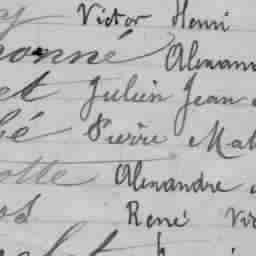 y Victor Henri
onné Alexan
et Julien Jean
bé Pierre Mat
otte Alexandre
os René Vi